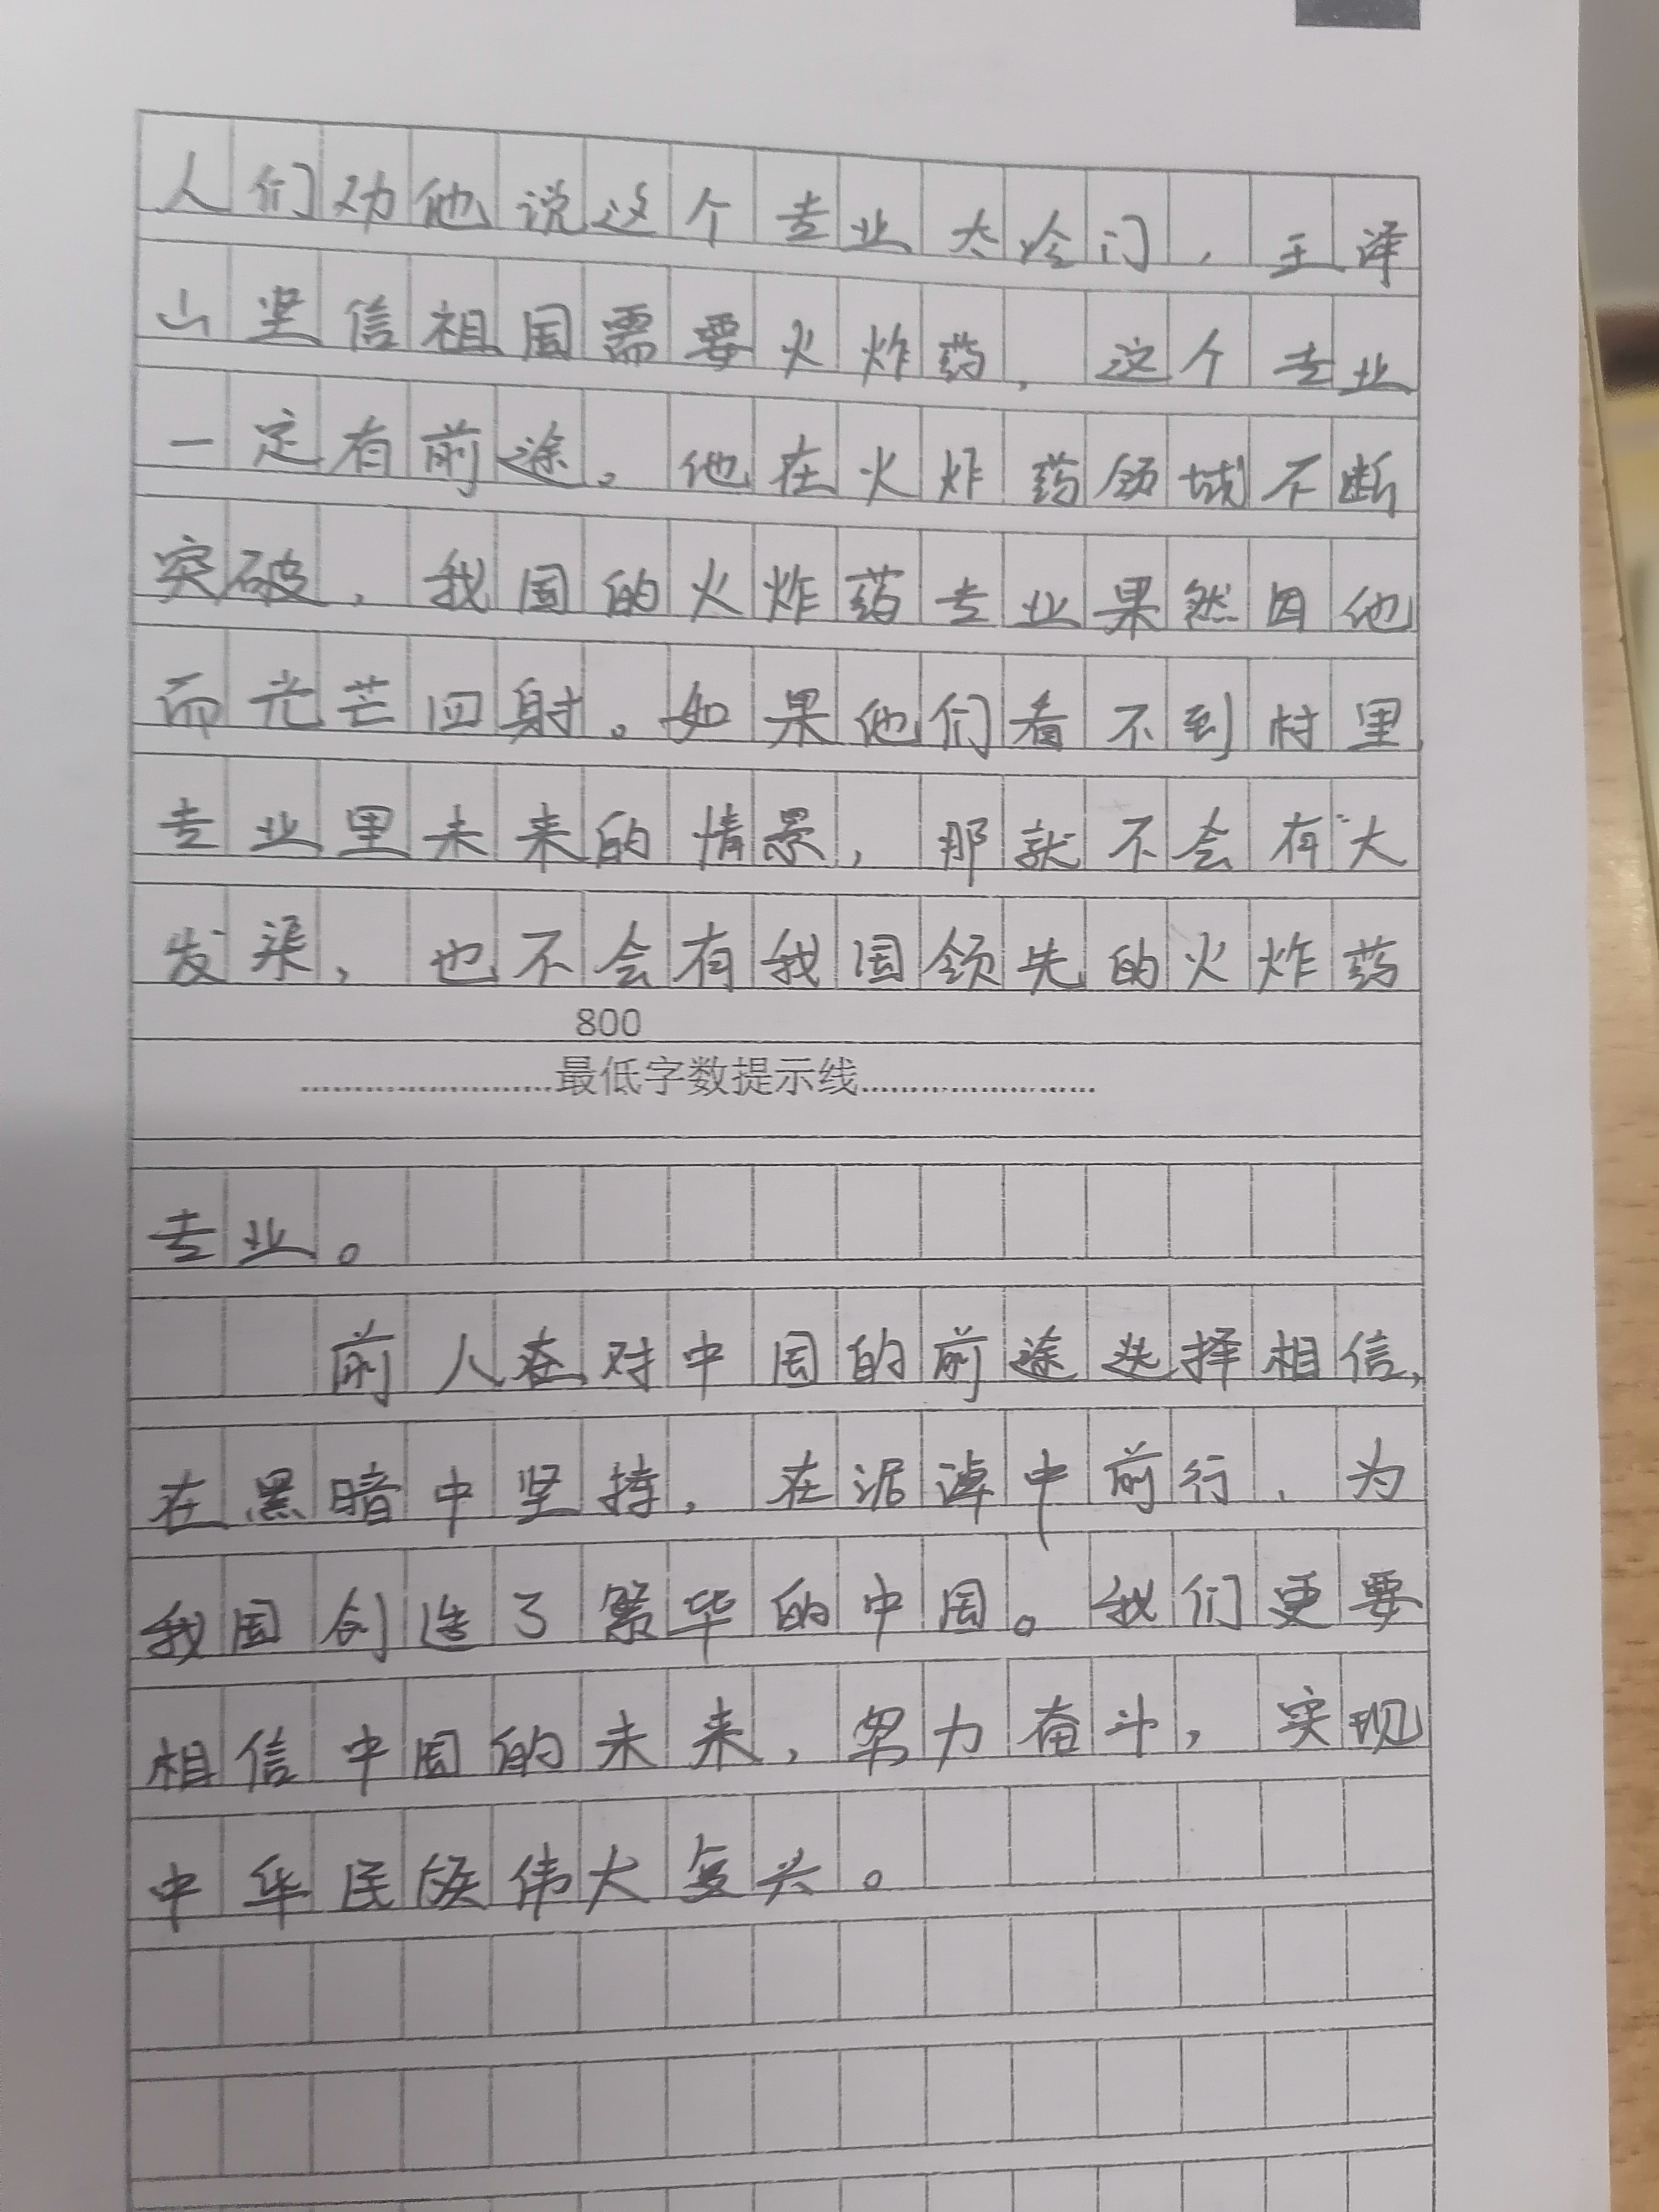 人们劝他说这个专业太冷门，王泽
山坚信祖国需要火炸药，这个专业
一定有前途。他在火炸药领域不断
突破，我国的火炸药专业果然因他
而光芒四射。如果他们看不到村里
专业里未来的情景，那就不会有大
发渠，也不会有我国领先的火炸药
800
最低字数提示线
专业。
前人在对中国的前途选择相信，
在黑暗中坚持，在泥潭中前行，为
我国创造了繁华的中国。我们更要
相信中国的未来，努力奋斗，实现
中华民族伟大复兴。